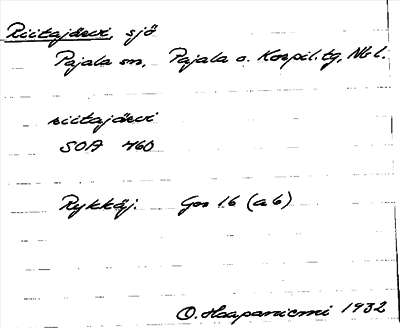 Riitajärvi, sjö
Pajala sn, Pajala o. Korpil. tg, Nb l.
riitajärvi
SOA 460
Rykkäj. Gos 16 (a 6)
O. Haapaniemi 1932